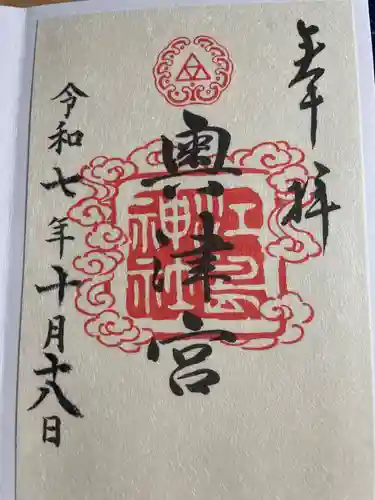 奉拝
奧津宮
江島神社
令和七年十月十八日